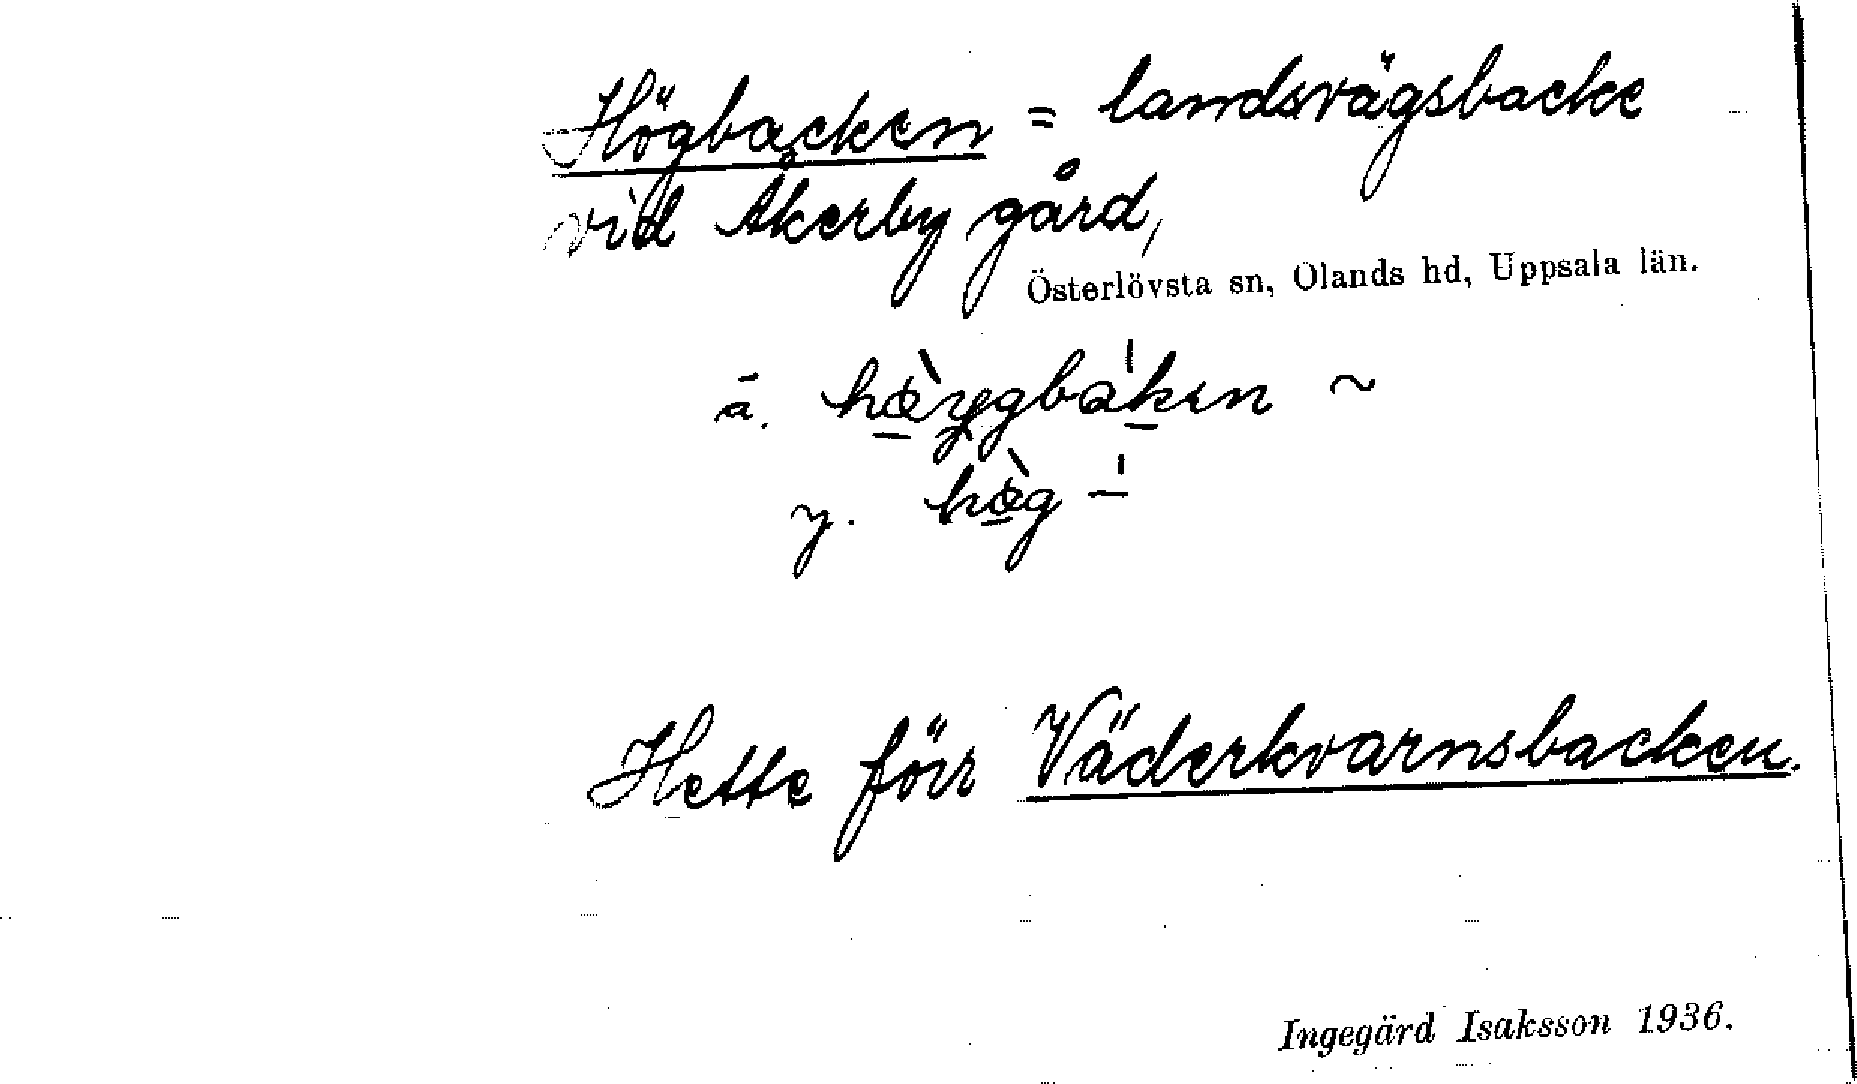 Högbacken = landsvägsbacke
vid Åkerby gård,
Österlövsta sn, Olands hd, Uppsala län.
ä. hœ̀ygbàken ~
y. hœ̀g –
Hette förr Väderkvarnsbacken.
Ingegärd Isaksson 1936.